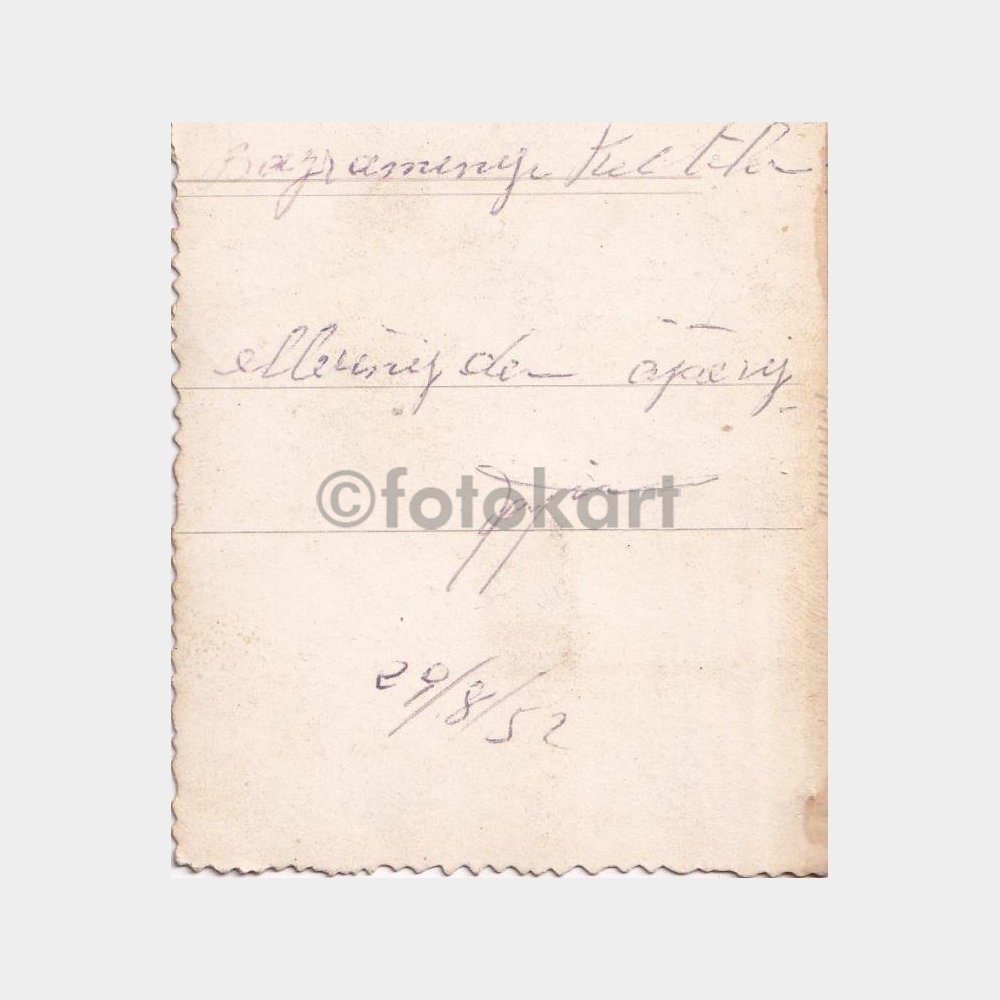 Bayramınızı Kutlar
ellerinizden öperiz
©fotokart
29/8/52